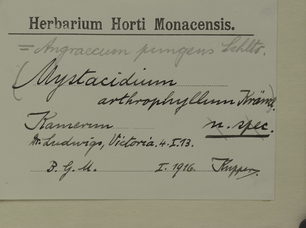 Herbarium Horti Monacensis.
= Angraecum pungens Schltr.
(Mystacidium
arthrophyllum Kränzl.)
Kamerun n. spec.
Dr. Ludwigs, Victoria. 4.I.13.
B. G. M. I. 1916 Kupper.